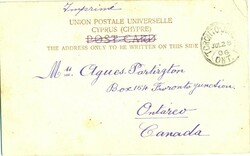 Imprimé
UNION POSTALE UNIVERSELLE
CYPRUS (CHYPRE)
POST CARD
THE ADDRESS ONLY TO BE WRITTEN ON THIS SIDE
TORONTO
JUL 29
06
ONT.
Miss Agnes. Partington
Box 164 Toronto Junction,
Ontareo
Canada